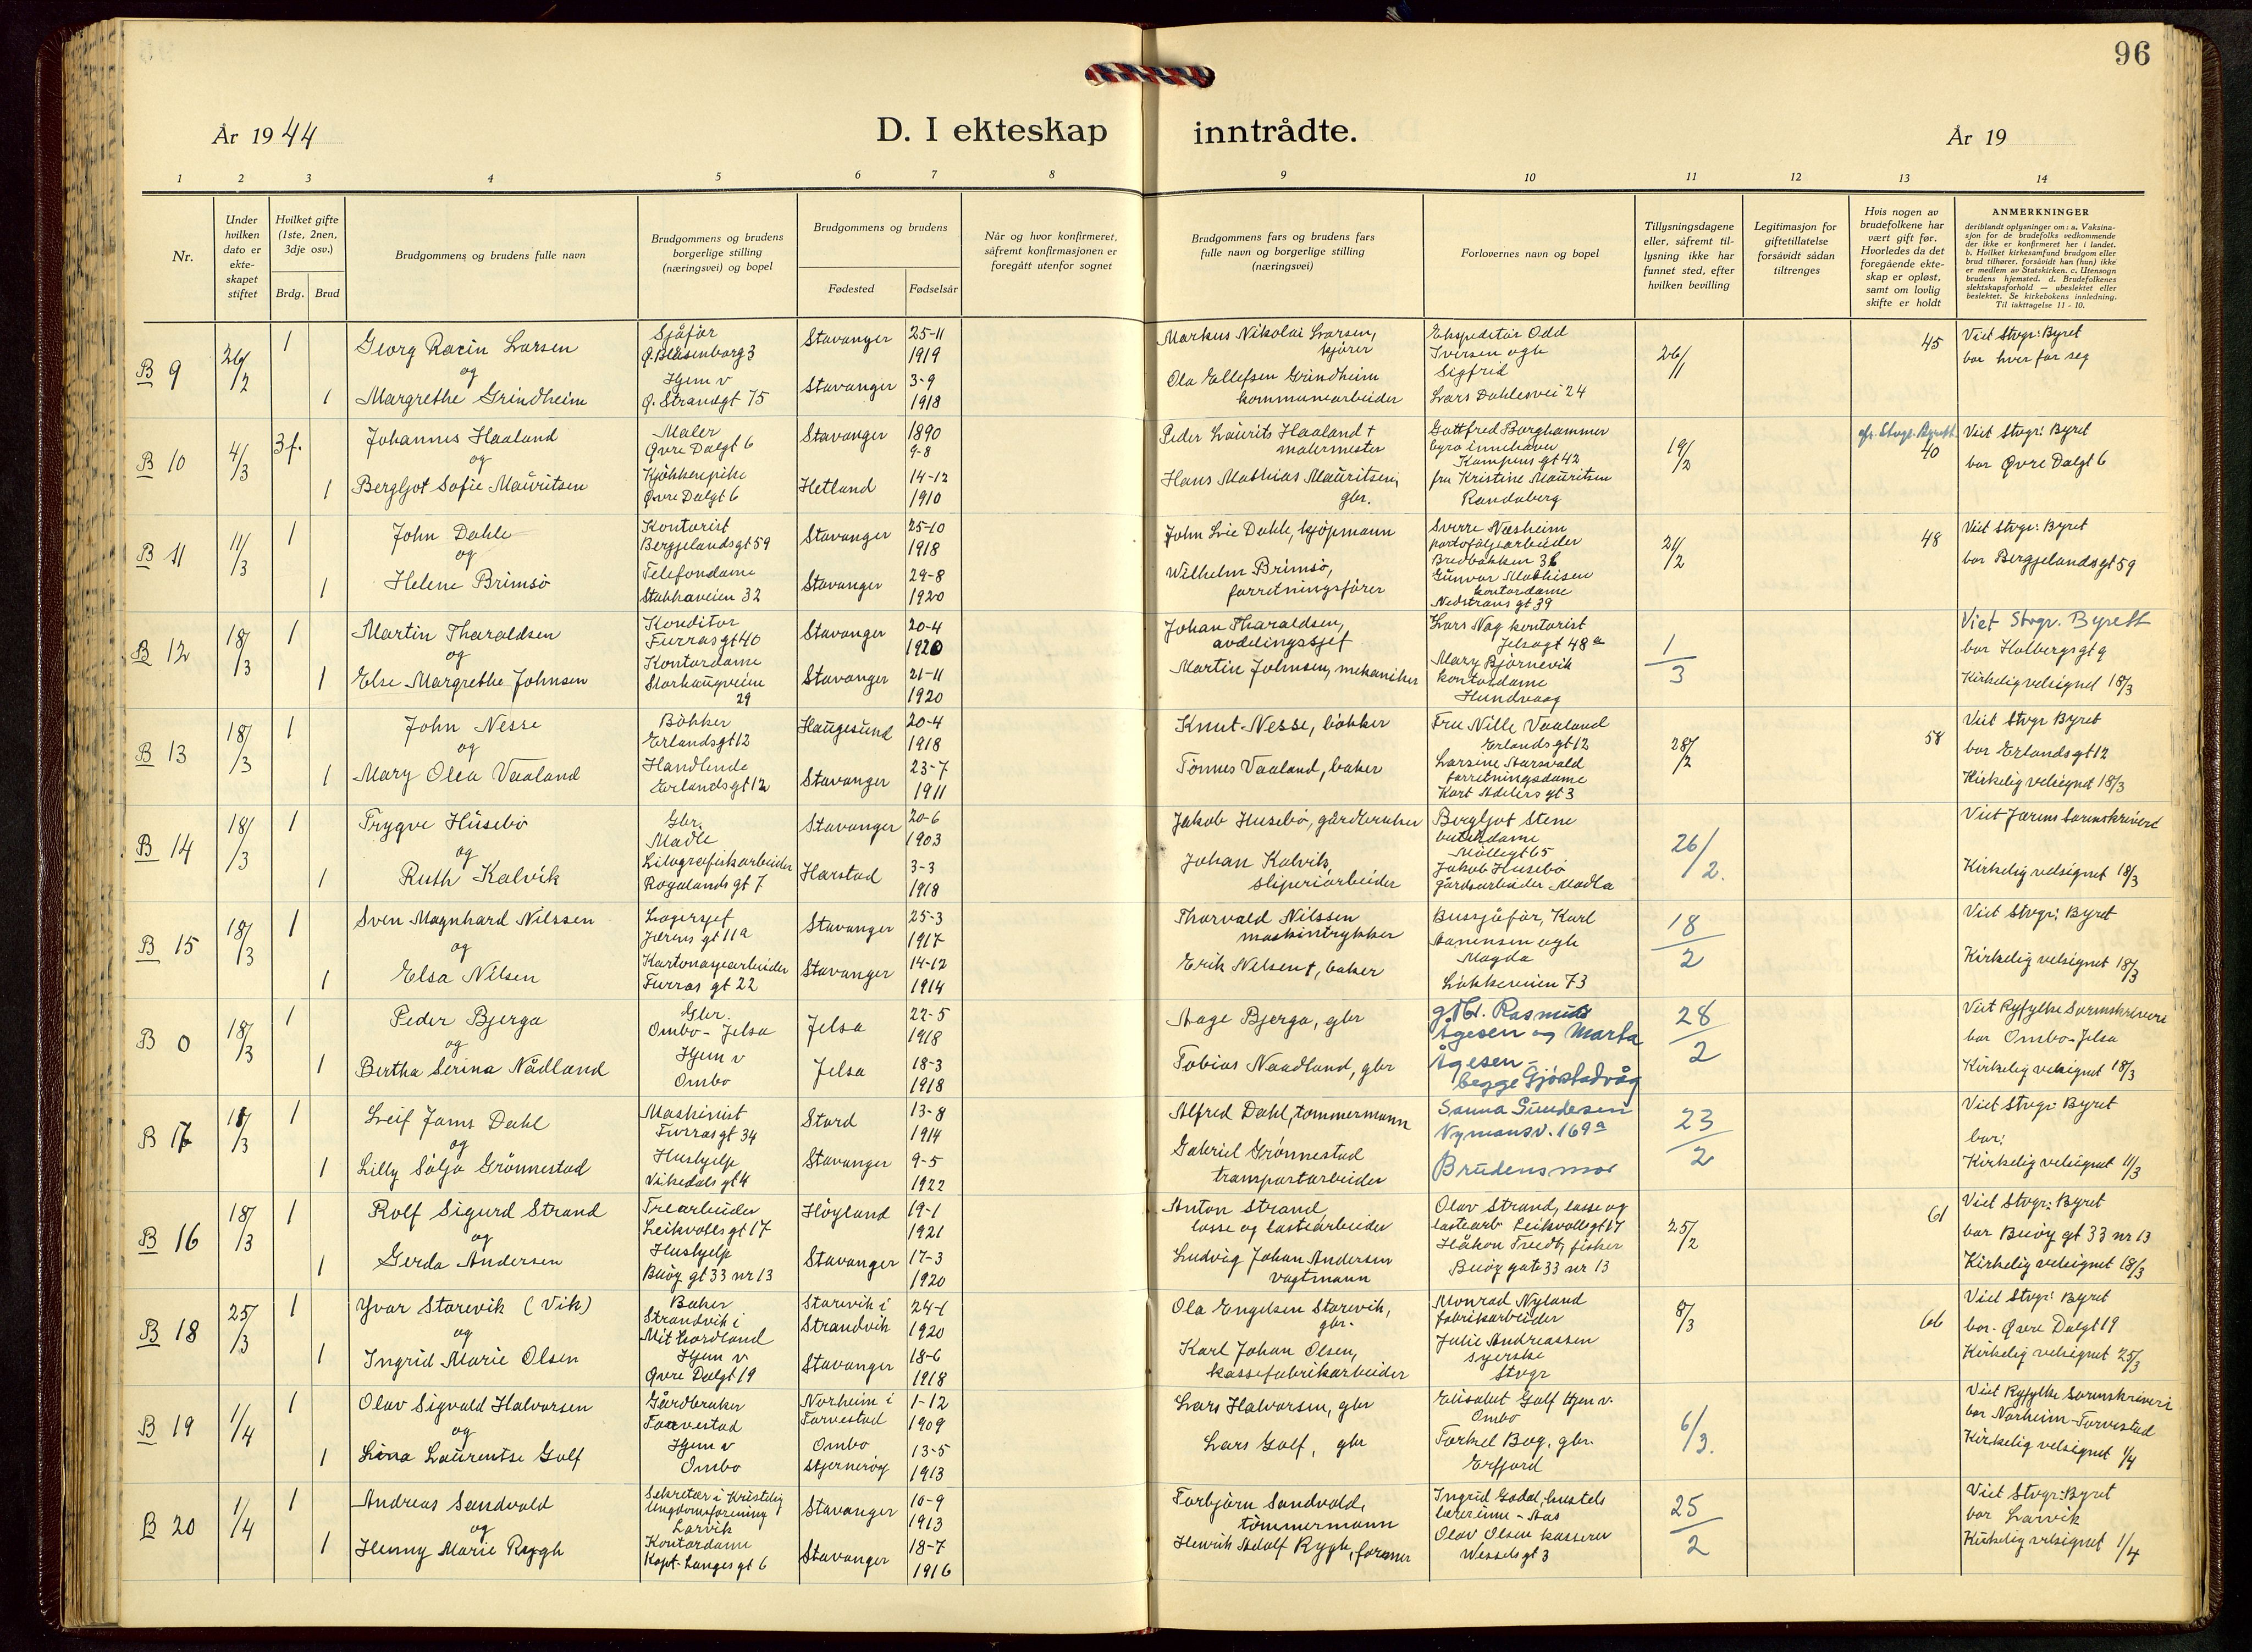 96
År 1944
D. I ekteskap inntrådte.
År 19
1 2 3 4 5 6 7 8 9 10 11 12 13 14
Nr.
Under hvilken dato er ekte- skapet stiftet
Hvilket gifte (1ste, 2nen, 3dje osv.)
Brdg. Brud
Brudgommens og brudens fulle navn
Brudgommens og brudens borgerlige stilling (næringsvei) og bopel
Brudgommens og brudens
Fødested Fødselsår
Når og hvor konfirmeret, såfremt konfirmasjonen er foregått utenfor sognet
Brudgommens fars og brudens fars fulle navn og borgerlige stilling (næringsvei)
Forlovernes navn og bopel
Tillysningsdagene eller, såfremt til- lysning ikke har funnet sted, efter hvilken bevilling
Legitimasjon for giftetillatelse forsåvidt sådan tiltrenges
Hvis nogen av brudefolkene har vært gift før. Hvorledes da det foregående ekte- skap er opløst, samt om lovlig skifte er holdt
ANMERKNINGER
deriblandt oplysninger om: a. Vaksina- sjon for de brudefolks vedkommende der ikke er konfirmeret her i landet. b. Hvilket kirkesamfund brudgom eller brud tilhører, forsåvidt han (hun) ikke er medlem av Statskirken. c. Utensogn brudens hjemsted. d. Brudefolkenes slektskapsforhold — ubeslektet eller beslektet. Se kirkebokens innledning. Til iakttagelse 11 - 10.
B 9 26/2 1 Georg Racin Larsen Sjåfør Stavanger 25-11 Markus Nikolai Larsen, Ekspeditør Odd 26/1 45 Viet Stvgr: Byret
og Ø. Blåsenborg 3 1919 kjører Iversen ogh bor hver for seg
1 Margrethe Grindheim Hjem v Stavanger 3-9 Ola Ellefsen Grindheim Sigfrid
Ø. Strandgt 75 1918 kommunearbeider Lars Dahlesvei 24
B 10 4/3 3f. Johannes Haaland Maler Stavanger 1890 Peder Laurits Haaland † Gottfred Borghammer 19/2 40 Viet Stvgr: Byret
og Øvre Dalgt 6 9-8 malermester byra innehaver bor Øvre Dalgt 6
1 Bergljot Sofie Mauritsen Kjøkkenpike Hetland 14-12 Hans Mathias Mauritsen, Kampens gt 42
Øvre Dalgt 6 1910 gbr. fru Kristine Mauritsen
Randaberg
B 11 11/3 1 John Dahle Kontorist Stavanger 25-10 John Lie Dahle, kjøpmann Sverre Næsheim 21/2 48 Viet Stvgr: Byret
og Bergjelandsgt 59 1918 portoføljearbeider bor Bergjelandsgt 59
1 Helene Brimsö Telefondame Stavanger 29-8 Wilhelm Brimsö, Bredbakken 36
Stokkaveien 32 1920 forretningsfører Gunvor Mathisen
kontordame
Nedstrans gt 39
B 12 18/3 1 Martin Tharaldsen Konditor Stavanger 20-4 Johan Tharaldsen, Lars Nag kontorist 1/3 Viet Stvgr. Byrett
og Furrasgt 40 1920 avdelingssjef Jelsagt 48a bor Holbergsgt 9
1 Else Margrethe Johnsen Kontordame Stavanger 21-11 Martin Johnsen, mekaniker Mary Bjørnevik Kirkelig velsignet 18/3
Storhaugveien 29 1920 kontordame
Hundvaag
B 13 18/3 1 John Nesse Bökker Haugesund 20-4 Knut Nesse, bökker Fru Nille Vaaland 28/2 58 Viet Stvgr Byret
og Erlandsgt 12 1918 Erlandsgt 12 bor Erlandsgt 12
1 Mary Olea Vaaland Handlende Stavanger 23-7 Tönnes Vaaland, baker Larsine Stursvald Kirkelig velsignet 18/3
Erlandsgt 12 1911 forretningsdame
Kort Adelers gt 3
B 14 18/3 1 Trygve Husebö Gbr. Stavanger 20-6 Jakob Husebö, gårdbruker Bergljot Stene 26/2. Viet Jærens Sorenskriveri
og Madle 1903 butikkdame
1 Ruth Kalvik Litografiskarbeider Harstad 3-3 Johan Kalvik, Möllegt 65 Kirkelig velsignet 18/3
Rogalandsgt 7 1918 sliperiarbeider Jakob Husebö
gårdsarbeider Madla
B 15 18/3 1 Sven Magnhard Nilssen Lagersjef Stavanger 25-3 Thorvald Nilssen Bussjåfør, Karl 18/2 Viet Stvgr: Byret
og Jærens gt 11a 1917 maskintrykker Aanensen ogh
1 Elsa Nilsen Kartonagearbeider Stavanger 14-12 Erik Nilsen †, baker Magda Kirkelig velsignet 18/3
Furras gt 22 1914 Lökkeveien 73
B 0 18/3 1 Peder Bjerga Gbr. Jelsa 22-5 Aage Bjerga, gbr gbr. Rasmus 28/2 Viet Ryfylke Sorenskriveri
og Ombo - Jelsa 1918 Ågesen og Marta bor Ombo - Jelsa
1 Bertha Serina Nådland Hjem v Jelsa 18-3 Tobias Naadland, gbr Ågesen - Kirkelig velsignet 18/3
Ombo 1918 begge Gjöstadvåg
B 17 11/3 1 Leif Jams Dahl Maskinist Stord 13-8 Alfred Dahl, tømmermann Sanna Gundersen 23/2 Viet Stvgr: Byret
og Furrasgt 34 1914 Nymansv. 169a bor:
1 Lilly Sölja Grönnestad Hushjelp Stavanger 9-5 Gabriel Grønnestad Brudens mor Kirkelig velsignet 11/3
Vikedals gt 4 1922 transportarbeider
B 16 18/3 1 Rolf Sigurd Strand Trearbeider Höyland 19-1 Anton Strand, Olav Strand, losse og 25/2 61 Viet Stvgr: Byret
og Leikvolls gt 17 1921 losse og lastearbeider lastearb Leikvollsgt 17 bor Buöy gt 33 nr 13
1 Gerda Andersen Hushjelp Stavanger 17-3 Ludvig Johan Andersen Håkon Tvedt, fisker Kirkelig velsignet 18/3
Buöy gt 33 nr 13 1920 vagtmann Buöy gate 33 nr 13
B 18 25/3 1 Yvar Storevik (Vik) Baker Storevik i 24-1 Ola Engelsen Storevik, Monrad Nyland 8/3 66 Viet Stvgr: Byret
og Strandvik i Strandvik 1920 gbr. fabrikarbeider bor. Øvre Dalgt 19
1 Ingrid Marie Olsen Mithordland Stavanger 18-6 Karl Johan Olsen, Julie Andreassen Kirkelig velsignet 25/3
Hjem v 1918 kassefabrikarbeider syerske
Øvre Dalgt 19 Stvgr
B 19 1/4 1 Olav Sigvald Halvorsen Gårdbruker Norheim i 1-12 Lars Halvorsen, gbr Elisabet Golf hjem v. 6/3. Viet Ryfylke Sorenskriveri
og Torvestad Torvestad 1909 Ombo bor Norheim - Torvestad
1 Lina Laurentse Golf Hjem v Ombo 13-5 Lars Golf, gbr Torkel Bog, gbr. Kirkelig velsignet 1/4
Ombo Stjernerøy 1913 Erfjord
B 20 1/4 1 Andreas Sandvold Sekretær i Kristelig Stavanger 10-9 Torbjørn Sandvold, Ingrid Godal, husstels 25/2 Viet Stvgr: Byret
og Ungdomsforening 1913 tömmermann lærerinne - Aas bor Larvik
1 Henny Marie Rygh Larvik Stavanger 18-7 Henrik Adolf Rygh, formner Olav Olsen kasserer Kirkelig velsignet 1/4
Kontordame 1916 Wesselsgt 3
Kapt. Langes gt 6